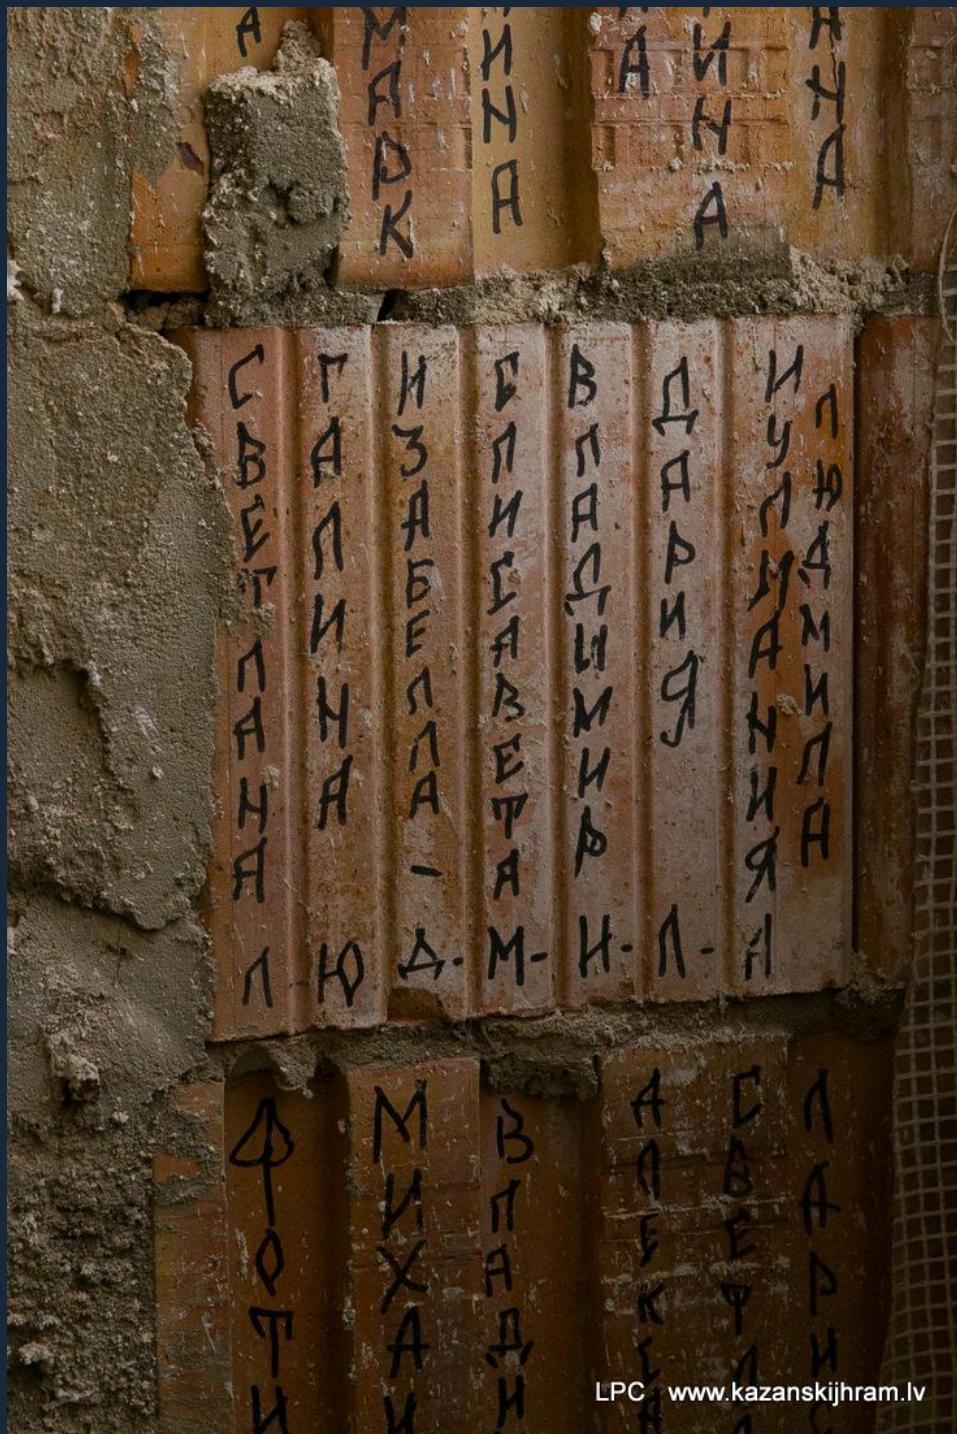 МАРК
ИНА
ИНА
АНА
СВЕТЛАНА
ГАЛИНА
ИЗАБЕЛЛА -
ЕЛИСАВЕТА
ВЛАДИМИР
ДАРИЯ
ИУЛИАНИЯ
ЛЮДМИЛА
Л Ю Д - М - И - Л - А
ФОТИ
МИХАИ
ВЛАДИ
АЛЕКСА
СВЕТЛА
ЛАРИС
LPC www.kazanskijhram.lv